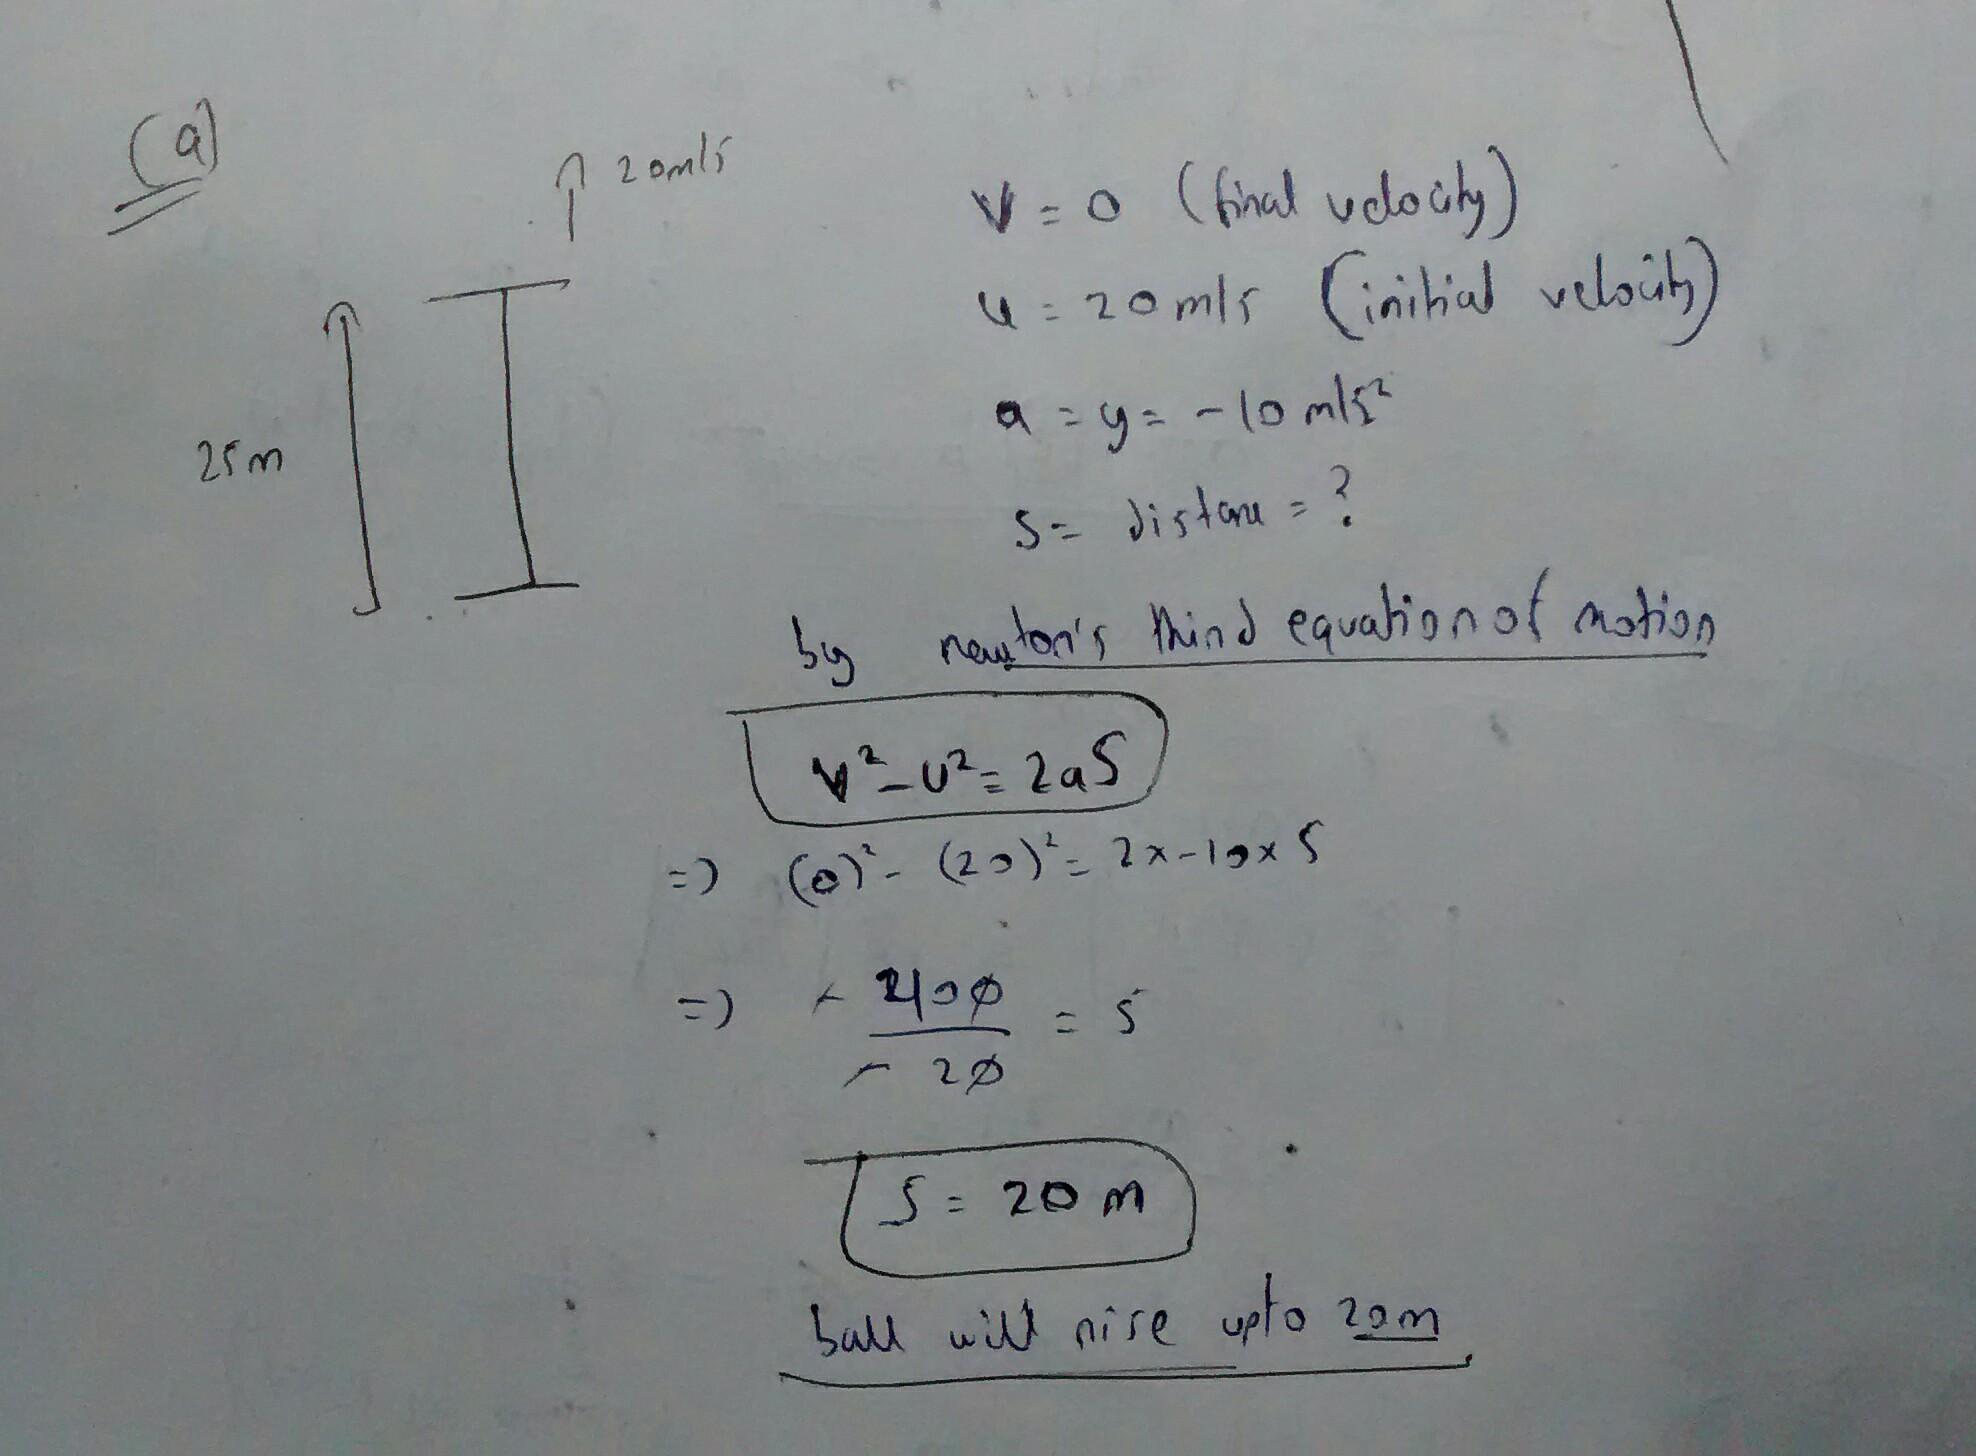 (a)
20m/s
25m
V = 0 (final velocity)
u = 20 m/s (initial velocity)
a = g = -10 m/s²
S = distance = ?
by newton's third equation of motion
V² - U² = 2aS
=> (0)² - (20)² = 2x-10x S
=> - 400 / - 20 = S
S = 20 m
ball will rise upto 20m